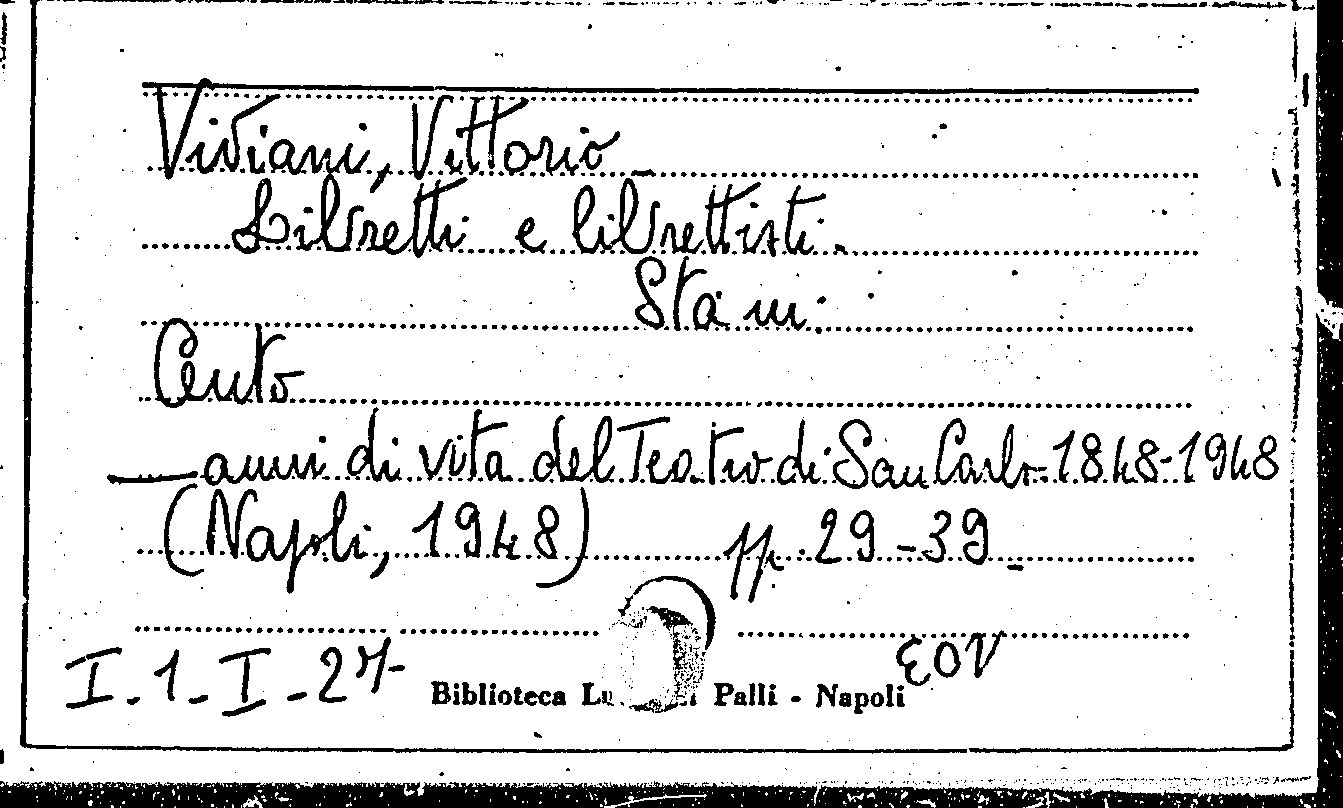 Viviani, Vittorio
Libretti e librettisti.
Sta in:
Cento
anni di vita del Teatro di San Carlo. 1848-1948
(Napoli, 1948) pp. 29-39
I-1-I-27
Biblioteca Palli - Napoli